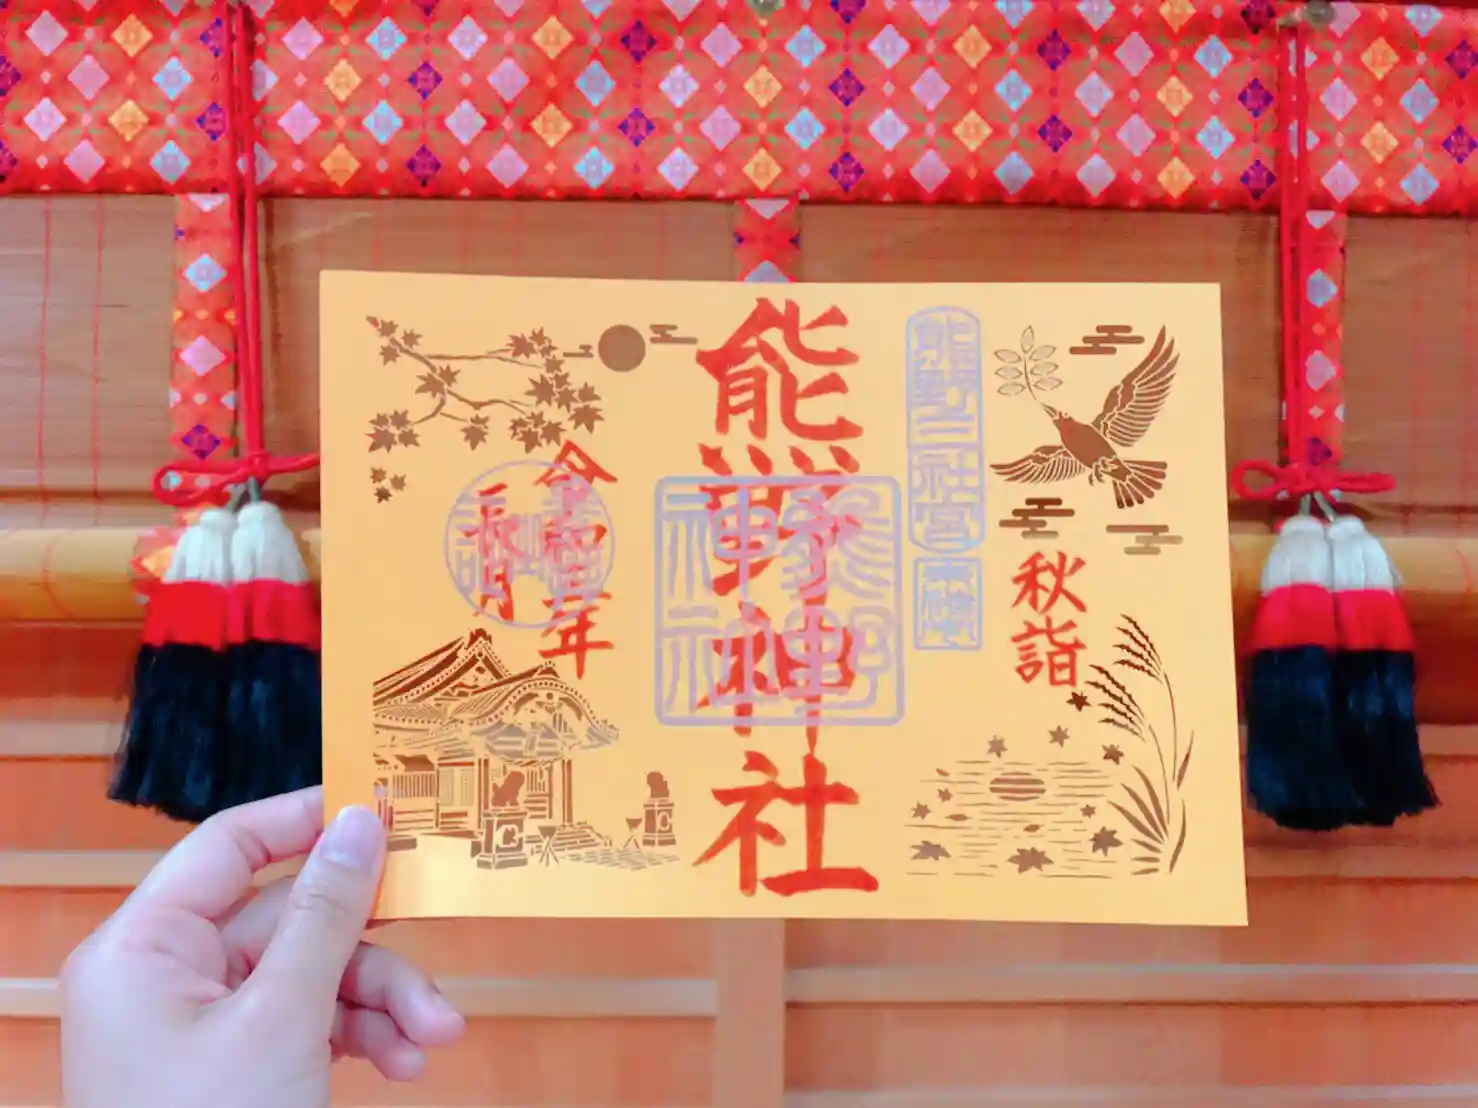 熊野三社宮
秋詣
熊野神社
熊野神社
令和四年
長月